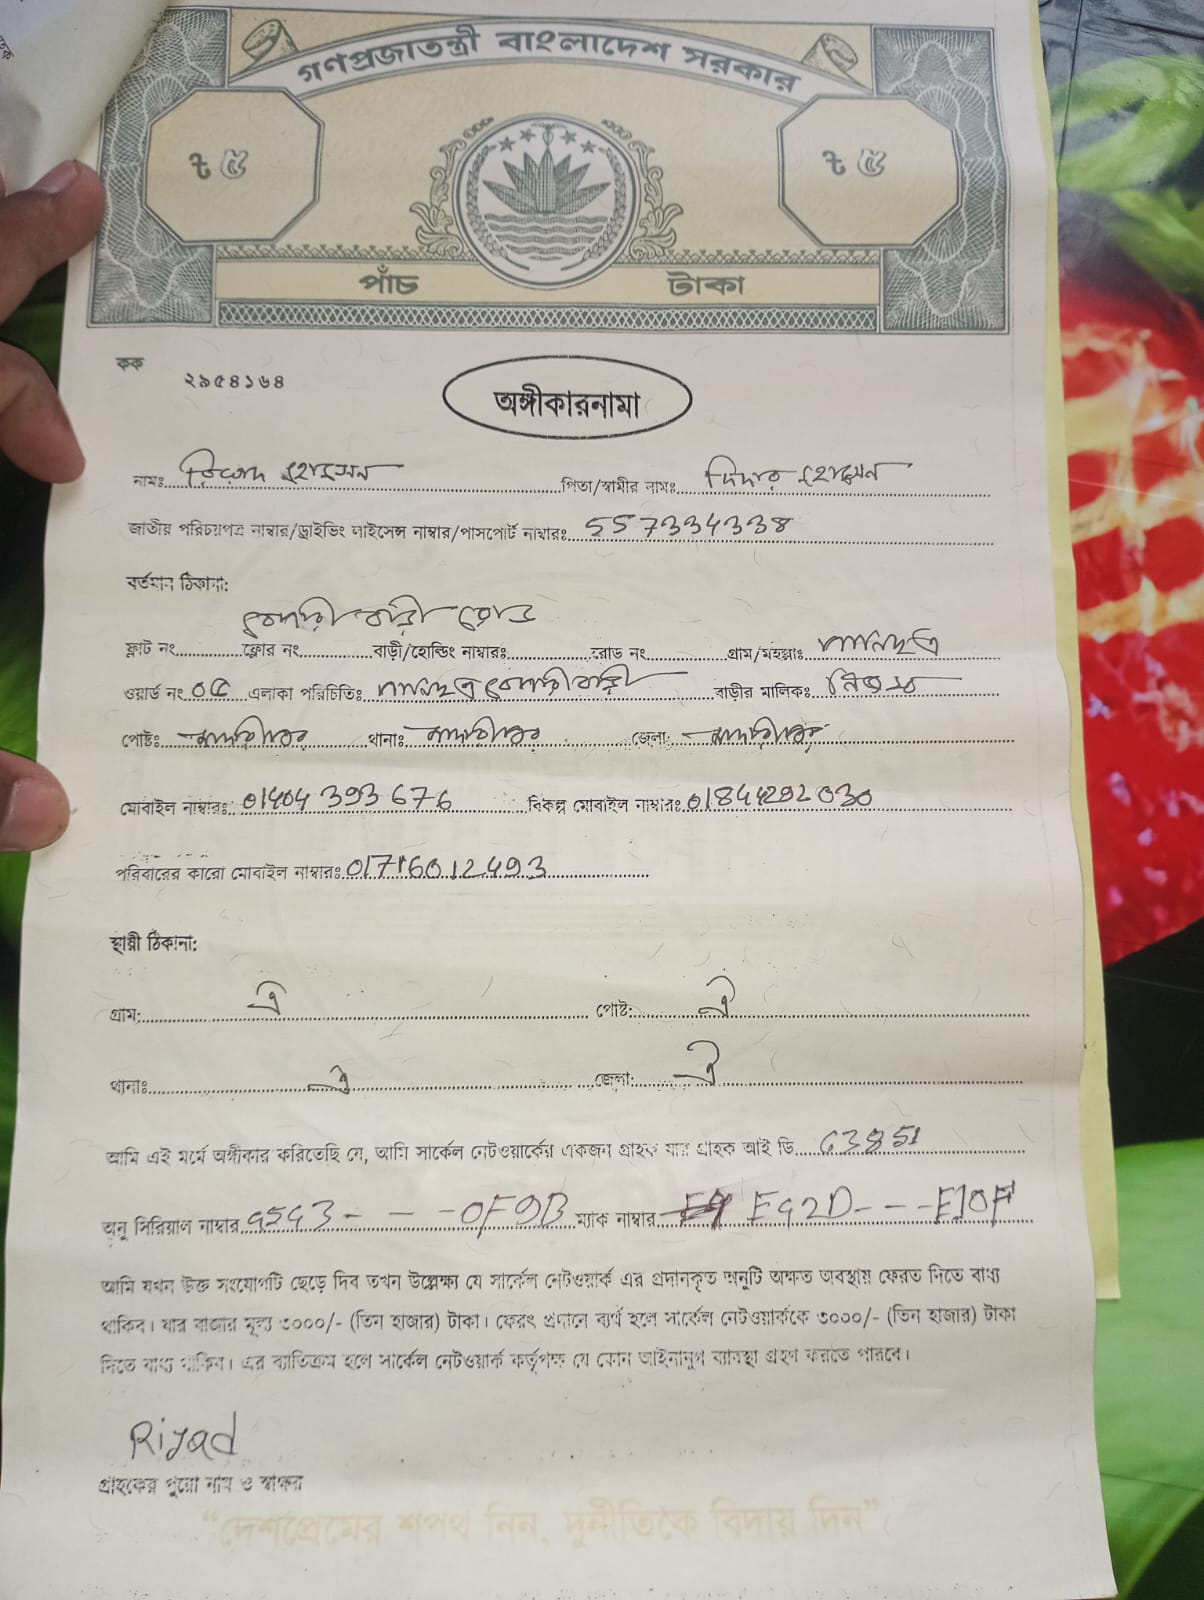 গণপ্রজাতন্ত্রী বাংলাদেশ সরকার
৳ ৫ ৳ ৫
পাঁচ টাকা
কক ২৯৫৪১৬৪
অঙ্গীকারনামা
নামঃ রিয়াদ হোসেন পিতা/স্বামীর নামঃ দিদার হোসেন
জাতীয় পরিচয়পত্র নাম্বার/ড্রাইভিং লাইসেন্স নাম্বার/পাসপোর্ট নাম্বারঃ 557334338
বর্তমান ঠিকানা:
রোড
ফ্লাট নং ফ্লোর নং বাড়ী/হোল্ডিং নাম্বারঃ রোড নং গ্রাম/মহল্লাঃ
ওয়ার্ড নং ০৫ এলাকা পরিচিতিঃ বাড়ীর মালিকঃ নিজস্ব
পোষ্টঃ মাদারীপুর থানাঃ মাদারীপুর জেলা: মাদারীপুর
মোবাইল নাম্বারঃ 01404393676 বিকল্প মোবাইল নাম্বারঃ 01844292030
পরিবারের কারো মোবাইল নাম্বারঃ 01716012493
স্থায়ী ঠিকানা:
গ্রাম: ঐ পোষ্ট: ঐ
থানাঃ ঐ জেলা: ঐ
আমি এই মর্মে অঙ্গীকার করিতেছি যে, আমি সার্কেল নেটওয়ার্কের একজন গ্রাহক যার গ্রাহক আই ডি
অনু সিরিয়াল নাম্বার - - - 0F9B ম্যাক নাম্বার - - - E10F
আমি যখন উক্ত সংযোগটি ছেড়ে দিব তখন উল্লেক্ষ্য যে সার্কেল নেটওয়ার্ক এর প্রদানকৃত অনুটি অক্ষত অবস্থায় ফেরত দিতে বাধ্য
থাকিব। যার বাজার মূল্য ৩০০০/- (তিন হাজার) টাকা। ফেরৎ প্রদানে ব্যর্থ হলে সার্কেল নেটওয়ার্ককে ৩০০০/- (তিন হাজার) টাকা
দিতে বাধ্য থাকিব। এর ব্যতিক্রম হলে সার্কেল নেটওয়ার্ক কর্তৃপক্ষ যে কোন আইনানুগ ব্যবস্থা গ্রহণ করতে পারবে।
Riyad
গ্রাহকের পুরো নাম ও স্বাক্ষর
“দেশপ্রেমের শপথ নিন, দুর্নীতিকে বিদায় দিন”